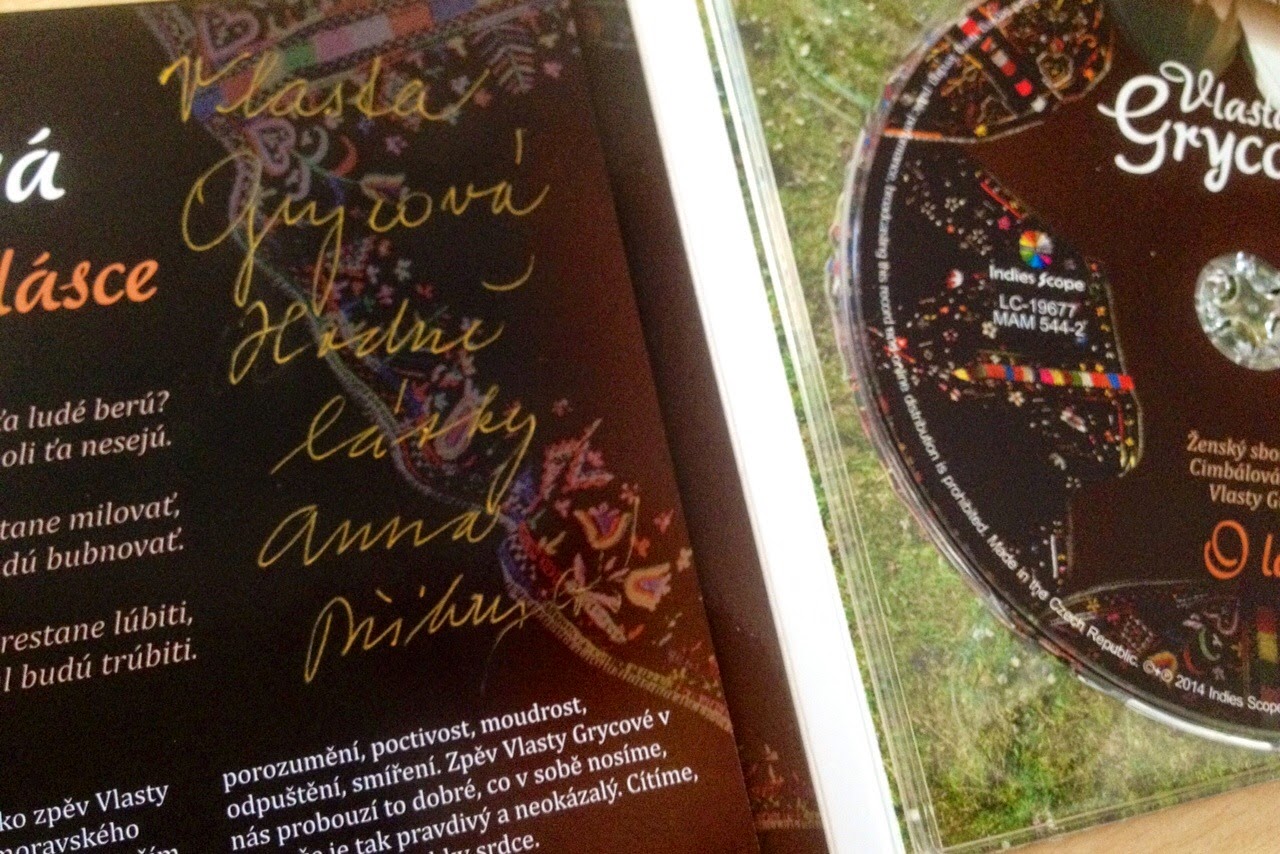 vá
lásce
ťa ludé berú?
oli ťa nesejú.
tane milovať,
dú bubnovať.
restane lúbiti,
l budú trúbiti.
ko zpěv Vlasty
moravského
Vlasta
Grycová
Hodně
lásky
Anna
porozumění, poctivost, moudrost,
odpuštění, smíření. Zpěv Vlasty Grycové v
nás probouzí to dobré, co v sobě nosíme,
je tak pravdivý a neokázalý. Cítíme,
srdce.
Vlasta
Gryco
Indies Scope
LC-19677
MAM 544-2
Ženský sbo
Cimbálová
Vlasty G
O lá
broadcasting the record and online distribution is prohibited. Made in The Czech Republic. ©+℗ 2014 Indies Scope